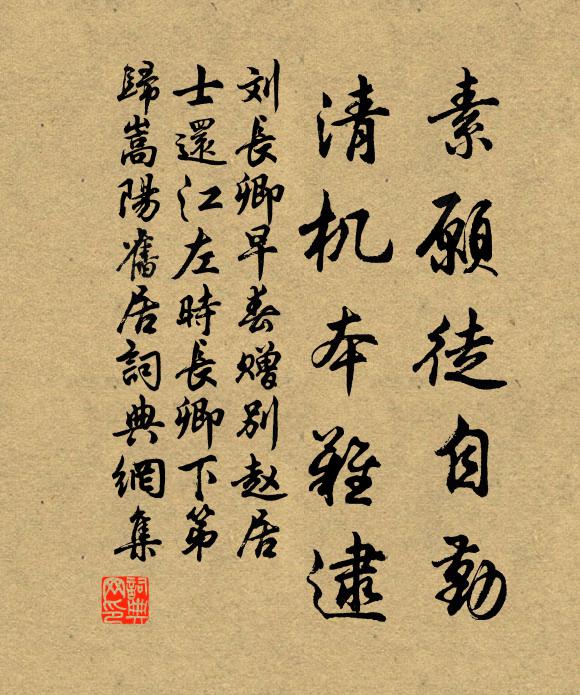 素願徒自勤
清机本難逮
刘長卿早春赠别赵居
士還江左時長卿下第
歸嵩陽舊居詞典網集
詞典网印